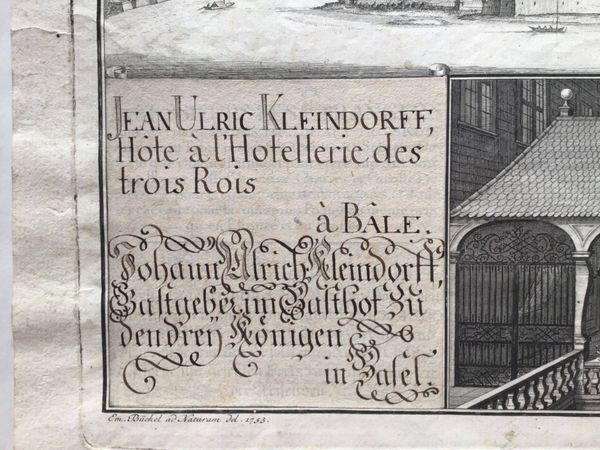 JEAN ULRIC KLEINDORFF,
Hôte à l'Hotellerie des
trois Rois
à BÂLE.
Johann Ulrich Kleindorff,
Gastgeber im Gasthof Zu
den dreÿ Königen
in Basel.
Em. Büchel ad Naturam del. 1753.